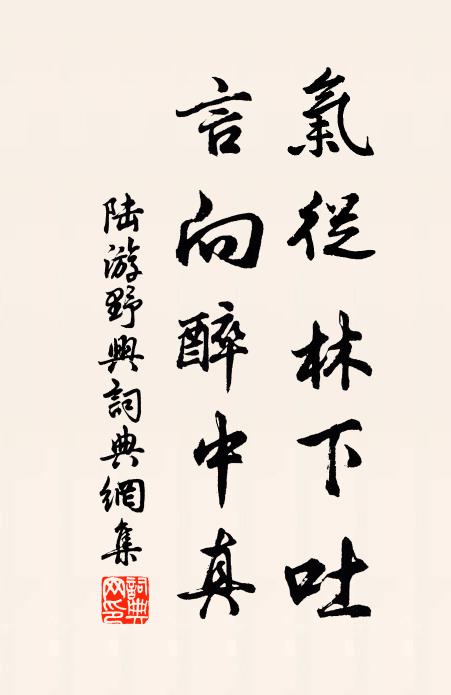 氣從林下吐
言向醉中真
陸游野興詞典網集
詞典网印